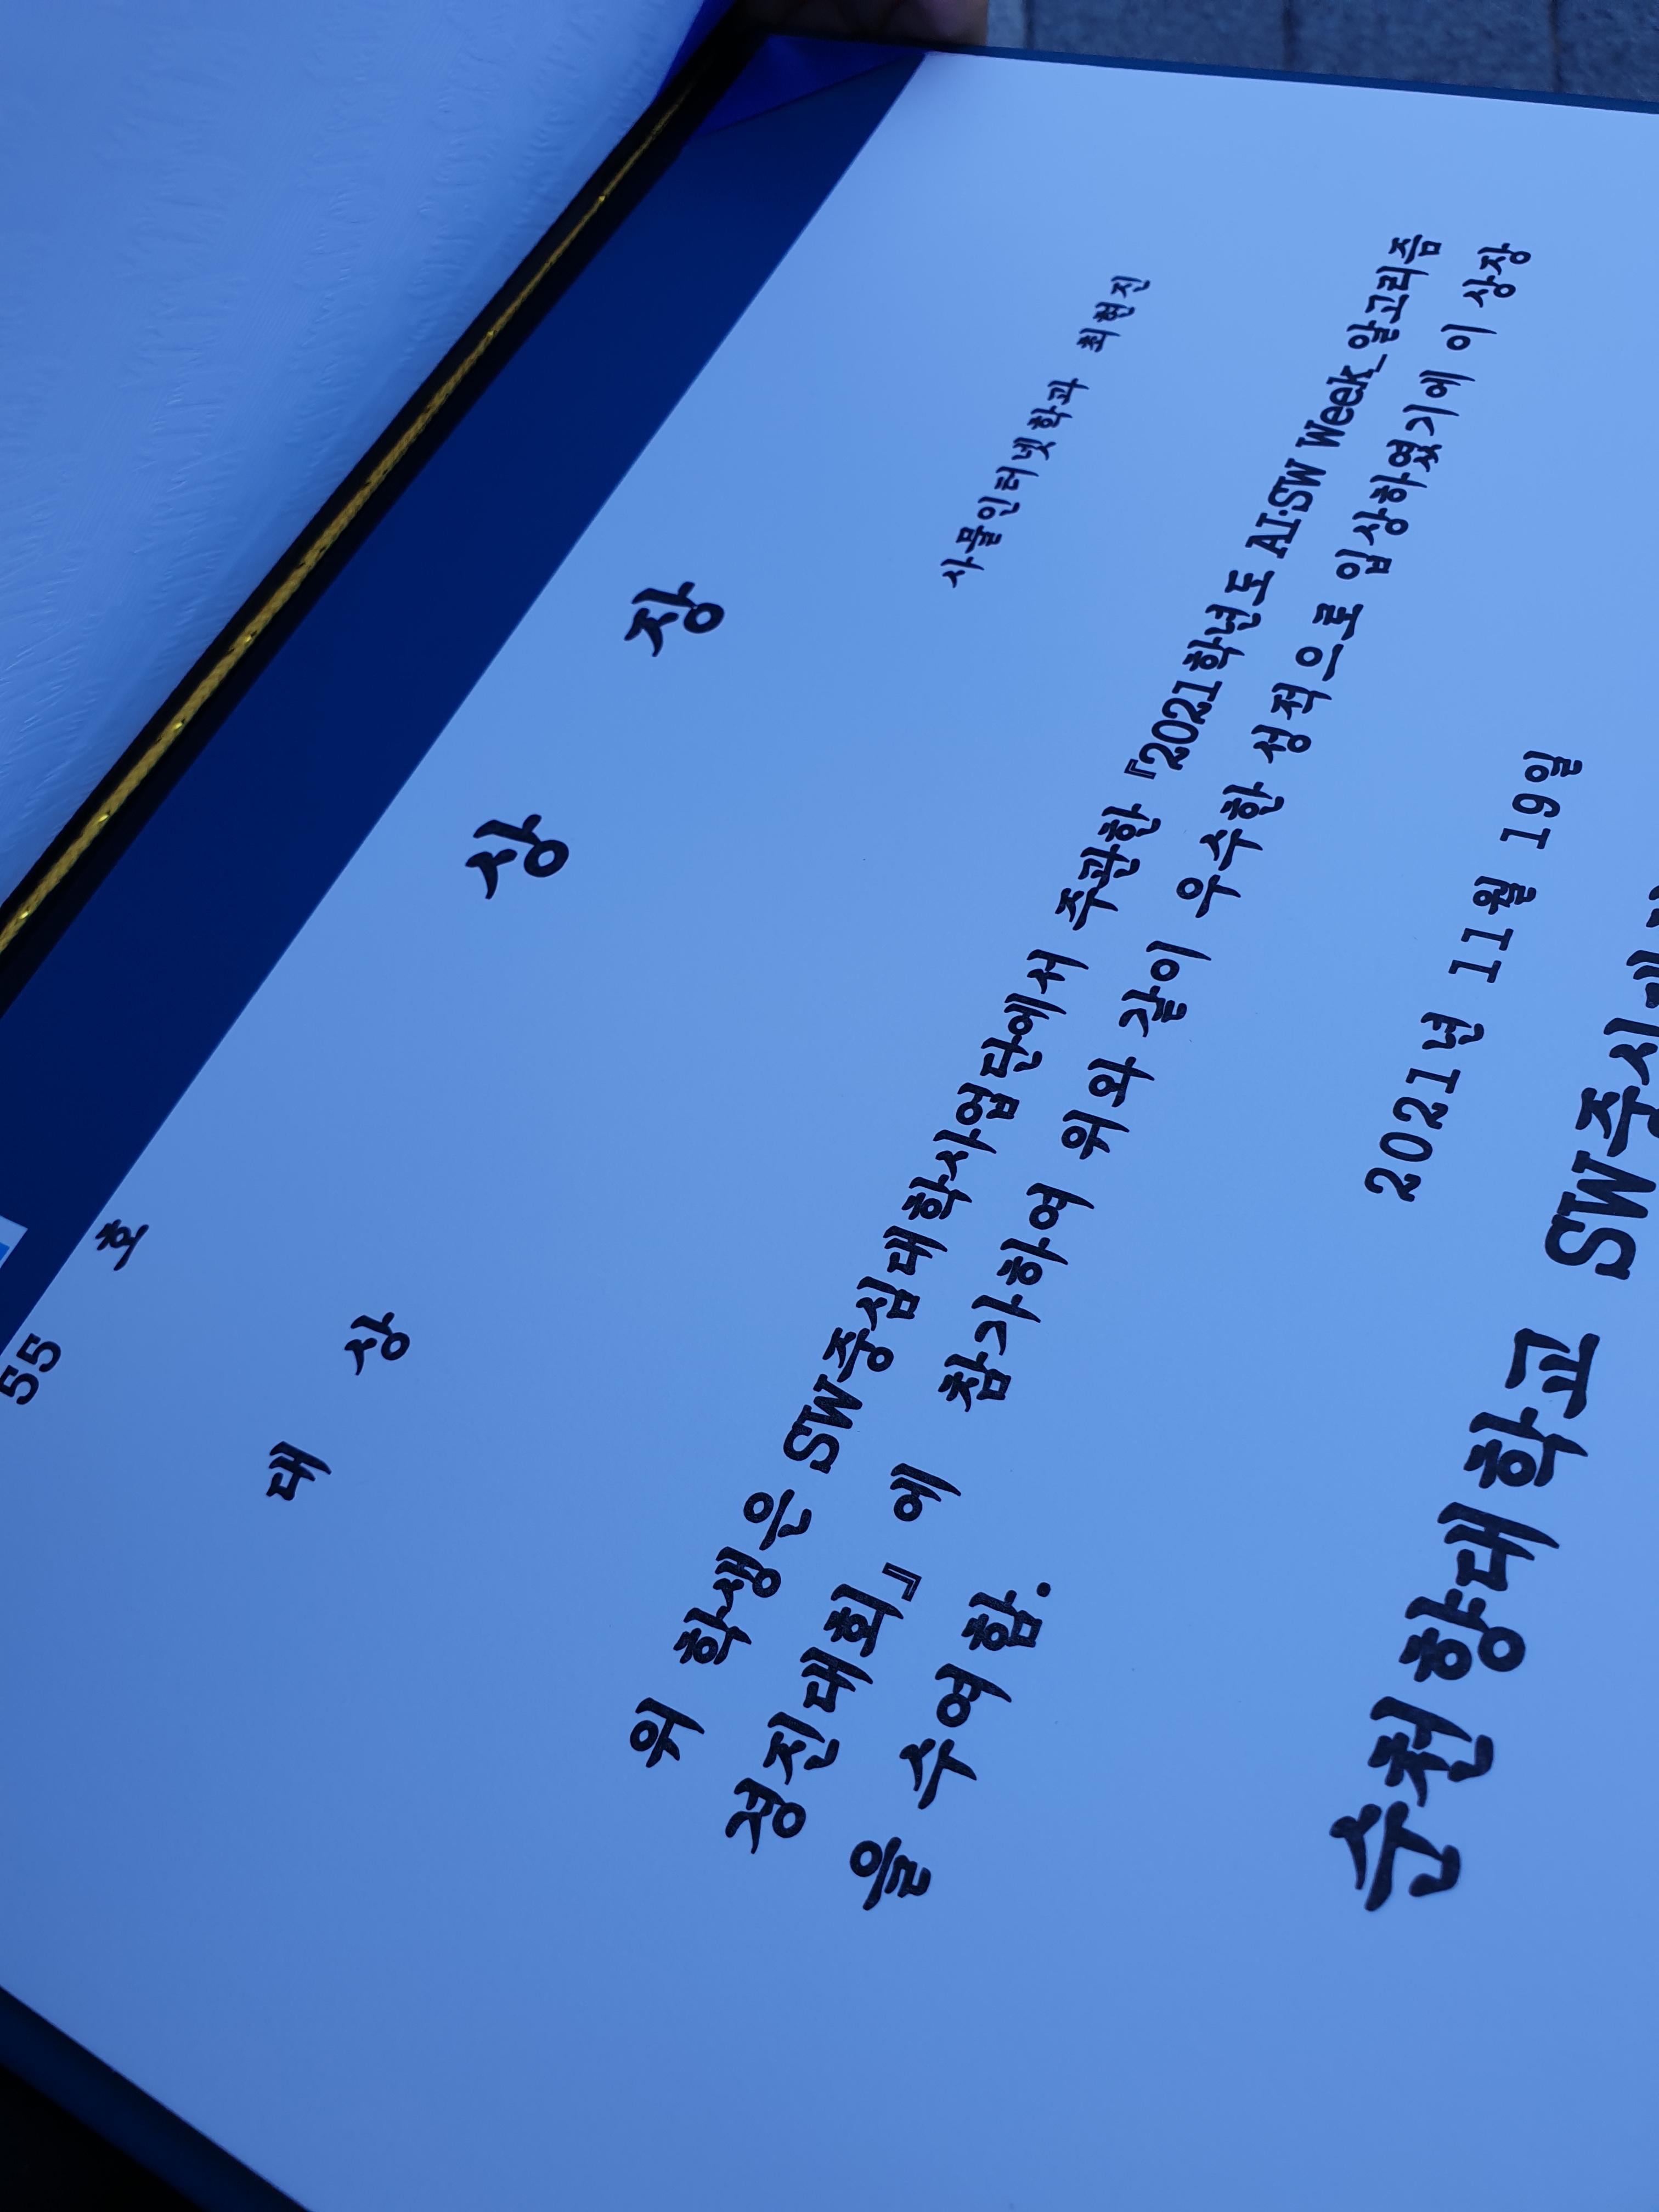 55 호
상 장
대 상
사물인터넷학과 최현진
위 학생은 SW중심대학사업단에서 주관한 『2021학년도 AI·SW Week_알고리즘
경진대회』에 참가하여 위와 같이 우수한 성적으로 입상하였기에 이 상장
을 수여함.
2021년 11월 19일
순천향대학교 SW중심